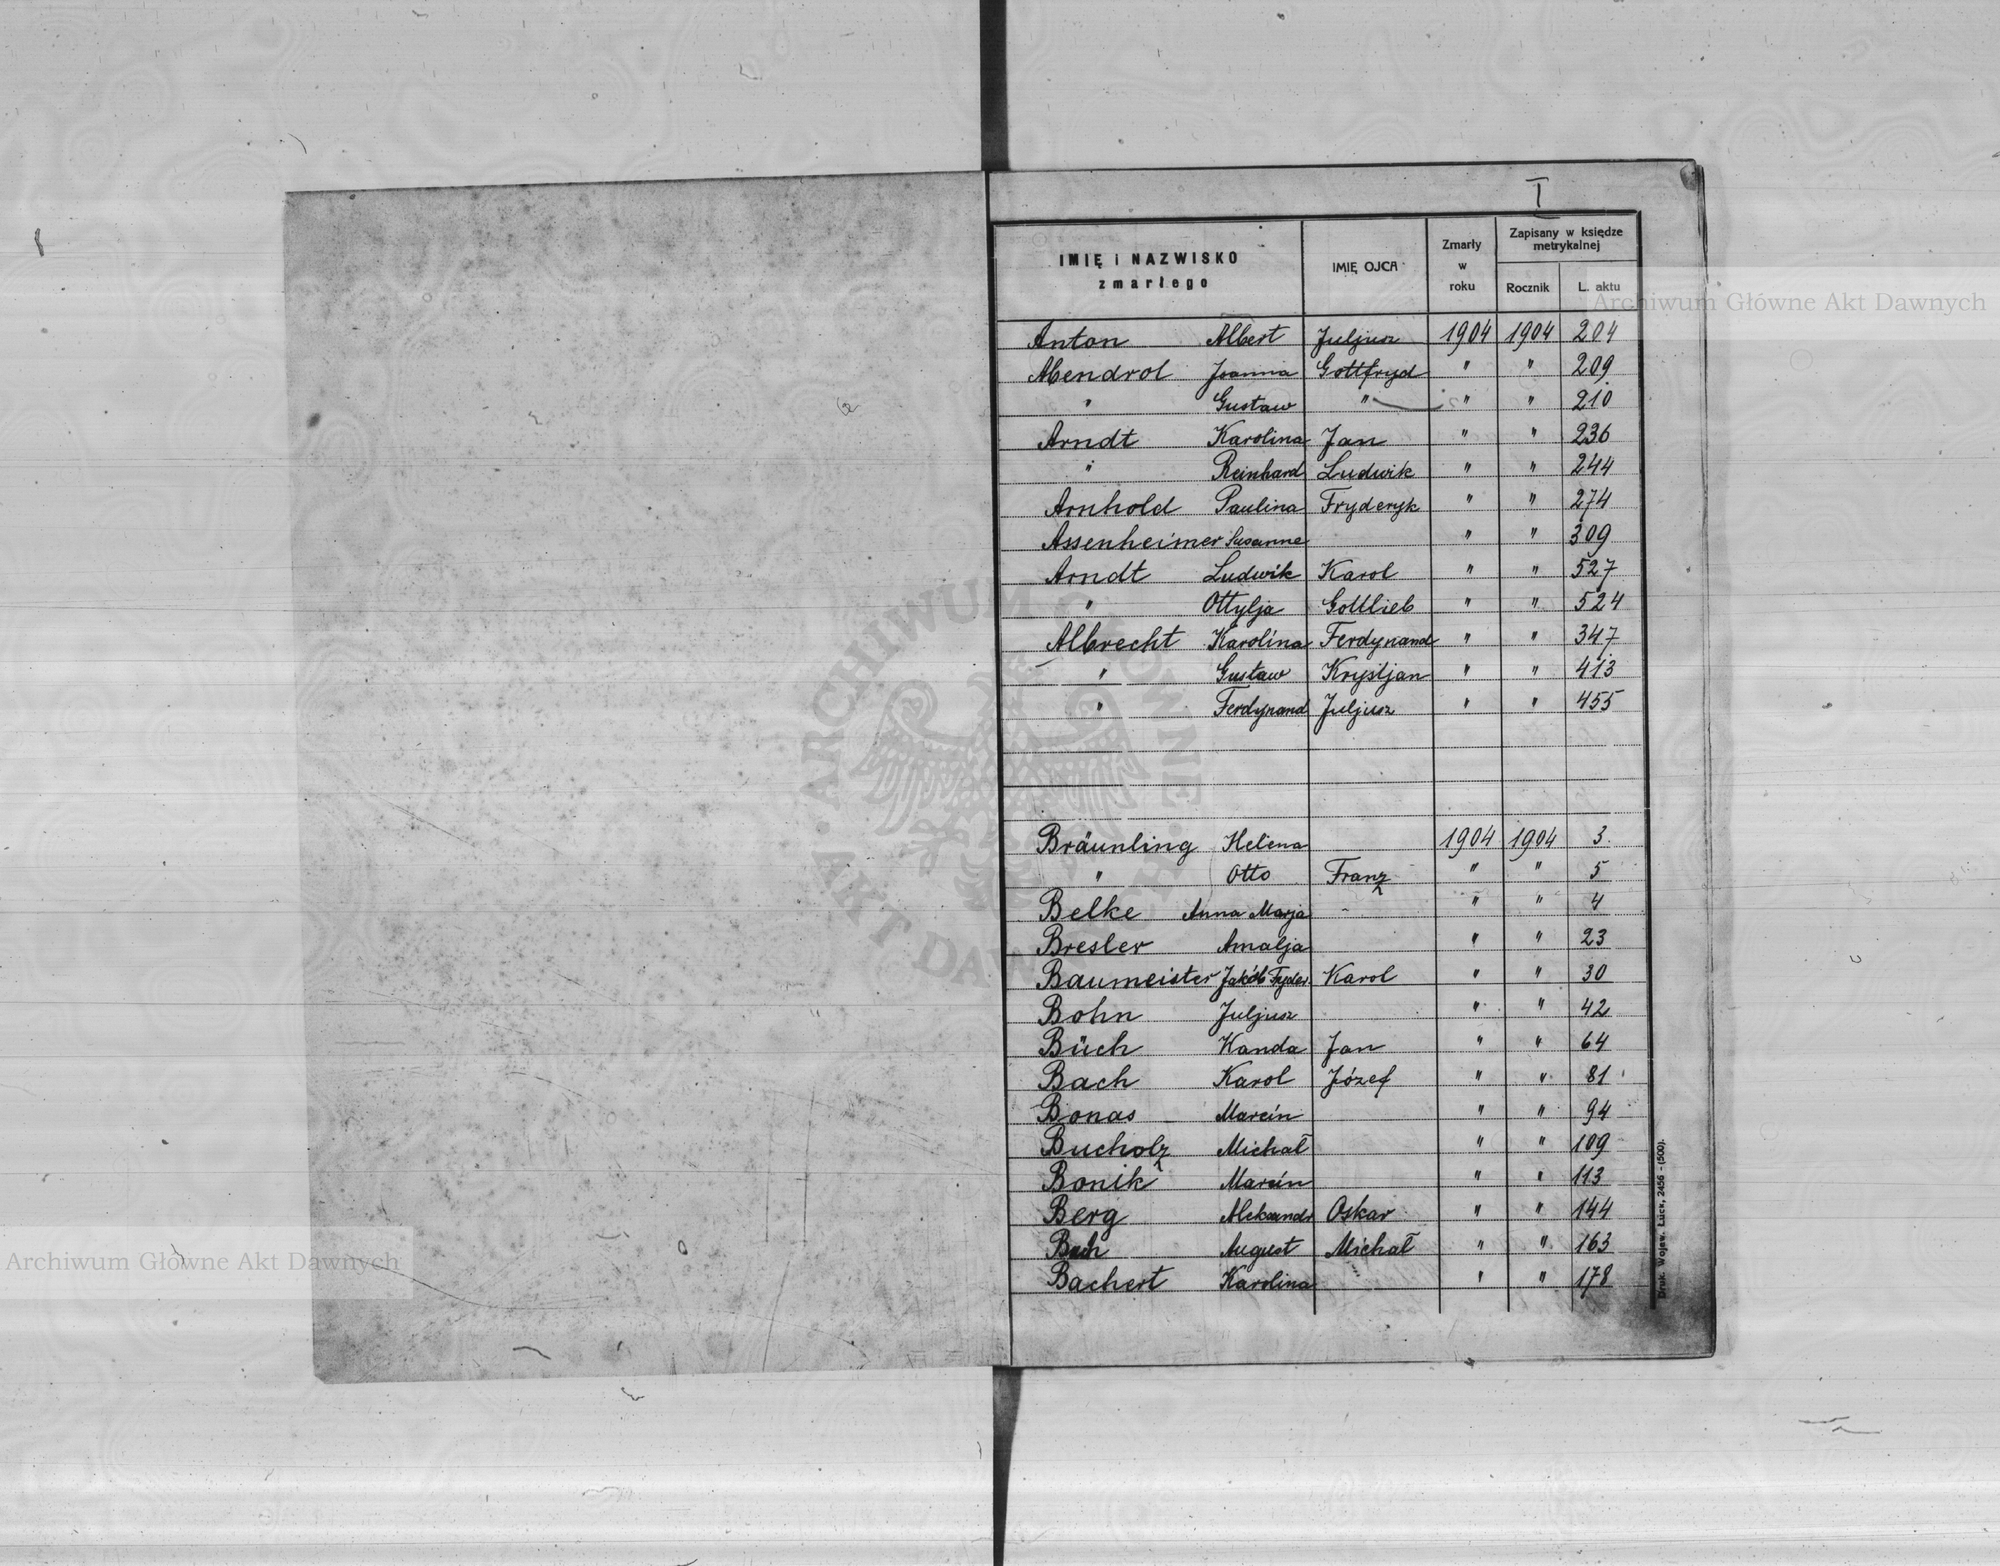 I
IMIĘ i NAZWISKO
zmarłego
IMIĘ OJCA
Zmarły
w
roku
Zapisany w księdze
metrykalnej
Rocznik
L. aktu
Archiwum Główne Akt Dawnych
Anton Albert Juljusz 1904 1904 204
Abendrol Joanna Gottfryd " " 209
" Gustaw " " " 210
Arndt Karolina Jan " " 236
" Reinhard Ludwik " " 244
Arnhold Paulina Fryderyk " " 274
Assenheimer Susanne " " 309
Arndt Ludwik Karol " " 527
" Ottylja Gottlieb " " 524
Albrecht Karolina Ferdynand " " 347
" Gustaw Krystjan " " 413
" Ferdynand Juljusz " " 455
ARCHIWUM GŁÓWNE AKT DAWNYCH
Bräunling Helena 1904 1904 3.
" Otto Franz " " 5
Belke Anna Marja - " " 4
Bresler Amalja " " 23
Baumeister Jakób Fryder. Karol " " 30
Bohn Juljusz " " 42
Büch Wanda Jan " " 64
Bach Karol Józef " " 81
Bonas Marcin " " 94
Bucholz Michał " " 109
Bonik Marcin " " 113
Berg Aleksandr Oskar " " 144
August Michał " " 163
Bachert Karolina " " 178
Druk. Wojew. Łuck, 2456 - (500).
Archiwum Główne Akt Dawnych